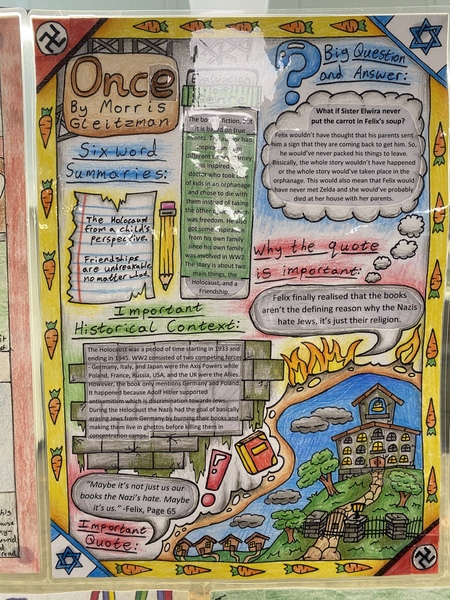 Once
By Morris
Gleitzman
Six Word
Summaries:
The Holocaust
from a child's
perspective.
Friendships
are unbreakable
no matter what.
fiction, but
it is on true
different
doctor who took
of kids in an orphanage
and chose to die with
them instead of taking
the other
was freedom. He also
got some
from his own family
since his own family
was involved in WW2
The story is about two
main things, the
Holocaust, and a
Friendship.
Big Question
and Answer:
What if Sister Elwira never
put the carrot in Felix's soup?
Felix wouldn't have thought that his parents sent
him a sign that they are coming back to get him. So,
he would've never packed his things to leave.
Basically, the whole story wouldn't've happened
or the whole story would've taken place in the
orphanage. This would also mean that Felix would
have never met Zelda and she would've probably
died at her house with her parents.
Why the quote
is important:
Felix finally realised that the books
aren't the defining reason why the Nazis
hate Jews, it's just their religion.
Important
Historical Context:
The Holocaust was a period of time starting in 1933 and
ending in 1945. WW2 consisted of two competing forces
- Germany, Italy, and Japan were the Axis Powers while
Poland, France, Russia, USA, and the UK were the Allies.
However, the book only mentions Germany and Poland.
It happened because Adolf Hitler supported
antisemitism which is discrimination towards Jews.
During the Holocaust the Nazis had the goal of basically
erasing Jews from Germany by burning their books and
making them live in ghettos before killing them in
concentration camps.
"Maybe it's not just us our
books the Nazi's hate. Maybe
it's us." -Felix, Page 65
Important
Quote: